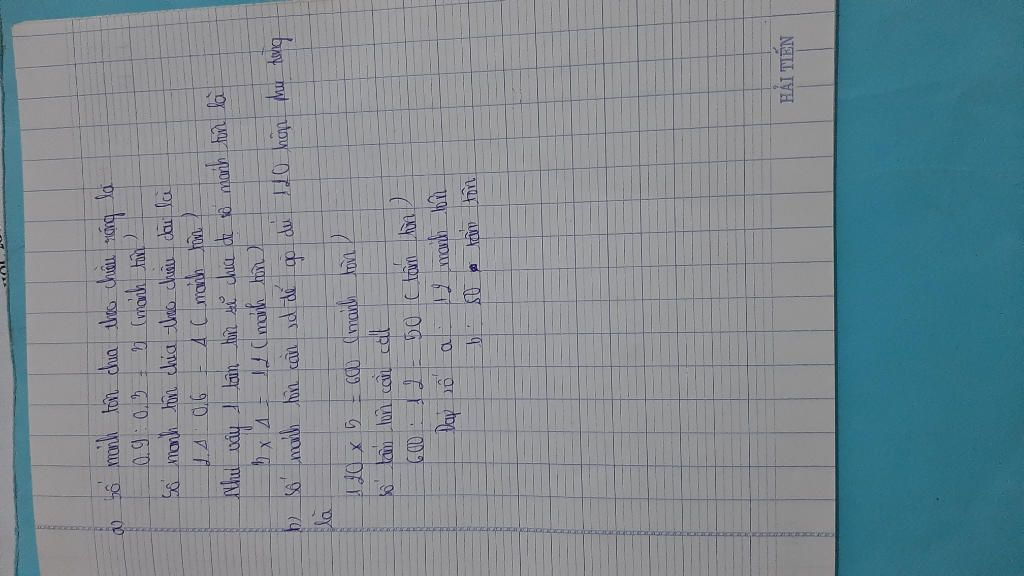 a) Số mảnh tôn chia theo chiều rộng là
0,9 : 0,3 = 3 (mảnh tôn)
Số mảnh tôn chia theo chiều dài là
2,4 : 0,6 = 4 (mảnh tôn)
Như vậy 1 tấm tôn sẽ chia đc số mảnh tôn là
3 x 4 = 12 (mảnh tôn)
b) Số mảnh tôn cần sd để gò đủ 120 hộp như rằng
là
120 x 5 = 600 (mảnh tôn)
Số tấm tôn cần cắt
600 : 12 = 50 (tấm tôn)
Đáp số a: 12 mảnh tôn
b: 50 tấm tôn
HẢI TIẾN